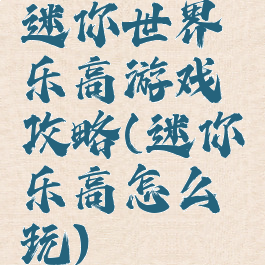 迷你世界
乐高游戏
攻略(迷你
乐高怎么
玩)